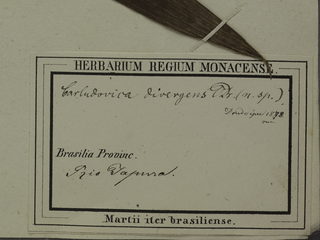 HERBARIUM REGIUM MONACENSE.
Carludovica divergens Dr. (n. sp.)
Brasilia Provinc.
Rio Japura.
Martii iter brasiliense.